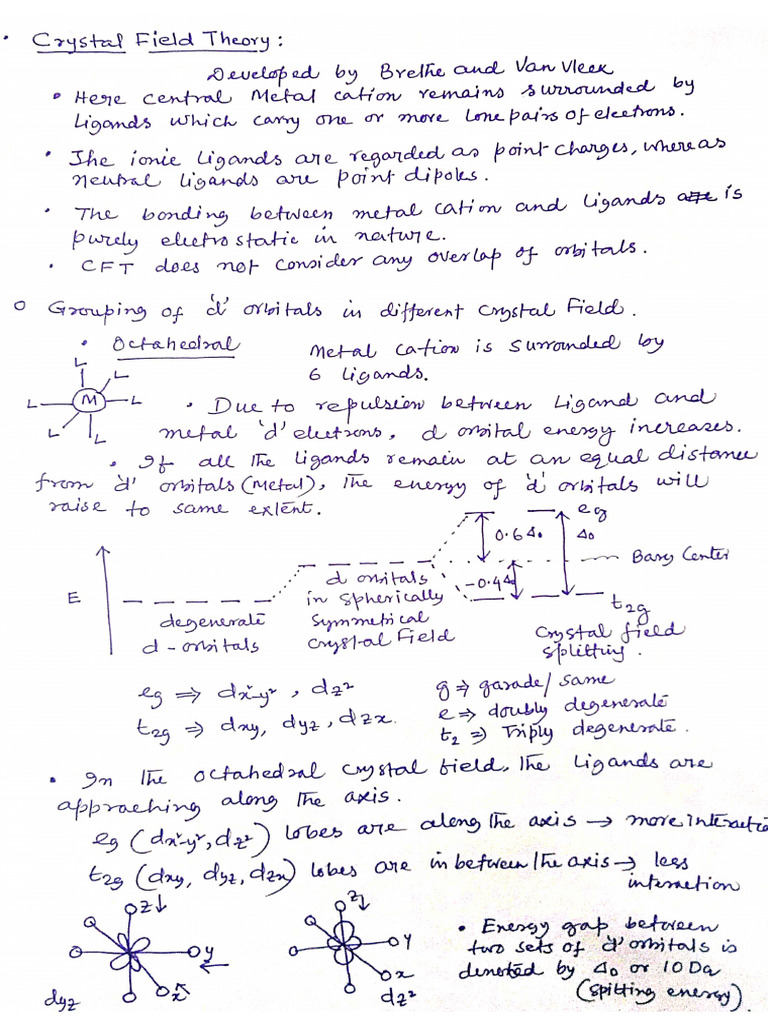 • Crystal Field Theory:
Developed by Brethe and Van Vleek
• Here central Metal cation remains surrounded by
Ligands which carry one or more lone pairs of electrons.
• The ionic ligands are regarded as point charges, whereas
neutral ligands are point dipoles.
• The bonding between metal cation and ligands are is
purely electrostatic in nature.
• CFT does not consider any overlap of orbitals.
○ Grouping of 'd' orbitals in different crystal Field.
• Octahedral
Metal cation is surrounded by
6 ligands.
L
L
L M L
L L
• Due to repulsion between Ligand and
metal 'd' electrons, d orbital energy increases.
• If all the ligands remain at an equal distance
from 'd' orbitals (Metal), the energy of 'd' orbitals will
raise to same extent.
eg
0.6Δ₀ Δ₀
Bary Center
-0.4Δ
t₂g
E
degenerate
d-orbitals
d orbitals
in spherically
symmetrical
crystal Field
Crystal field
splitting.
eg ⇒ dx²-y², dz²
t₂g ⇒ dxy, dyz, dzx.
g ⇒ garade/same
e ⇒ doubly degenerate
t₂ ⇒ Triply degenerate.
• In the octahedral crystal field, the ligands are
approaching along the axis.
eg (dx²-y², dz²) lobes are along the axis → more interactio
t₂g (dxy, dyz, dzx) lobes are in between the axis → less
interaction
z↓
y
←
x
dyz
z↓
y
x
dz²
• Energy gap between
two sets of 'd' orbitals is
denoted by Δ₀ or 10Da
(spitting energy).